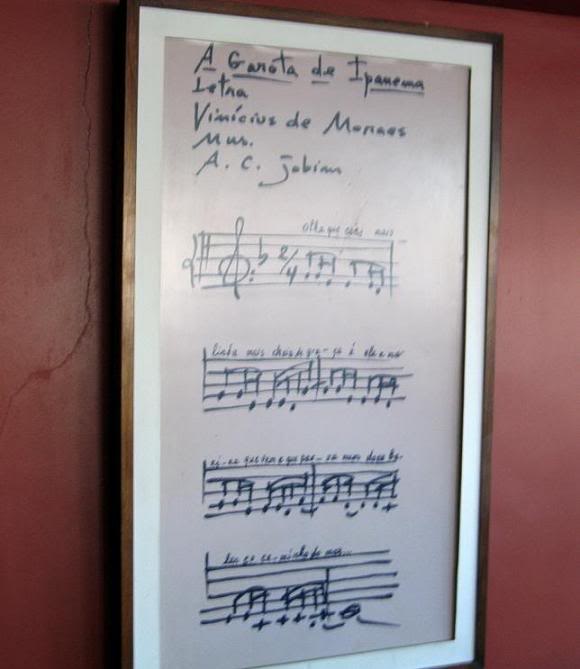 A Garota de Ipanema
Letra
Vinícius de Moraes
Mus.
A. C. Jobim
2/4
Olha que coisa mais
linda mais cheia de gra-ça é ela a me
ni-na que vem e que pas-sa num doce ba-
lan-ço ca-minho do mar...